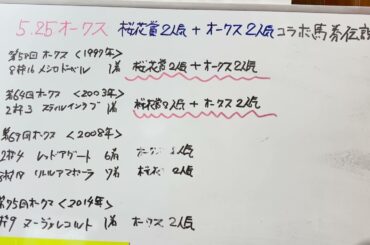 5.25オークス 桜花賞2人気 + オークス2人気 コラボ馬券伝説
第58回 オークス <1997年>
8枠16 メジロドーベル 1着 桜花賞2人気 + オークス2人気
第64回オークス <2003年>
2枠3 スティルインラブ 1着 桜花賞2人気 + オークス2人気
第69回オークス <2008年>
2枠4 レッドアゲート 6着 2人気
リトルアマポーラ 7着 2人気
第75回オークス <2014年>
枠9 ヌーヴォレコルト 1着 オークス 2人気